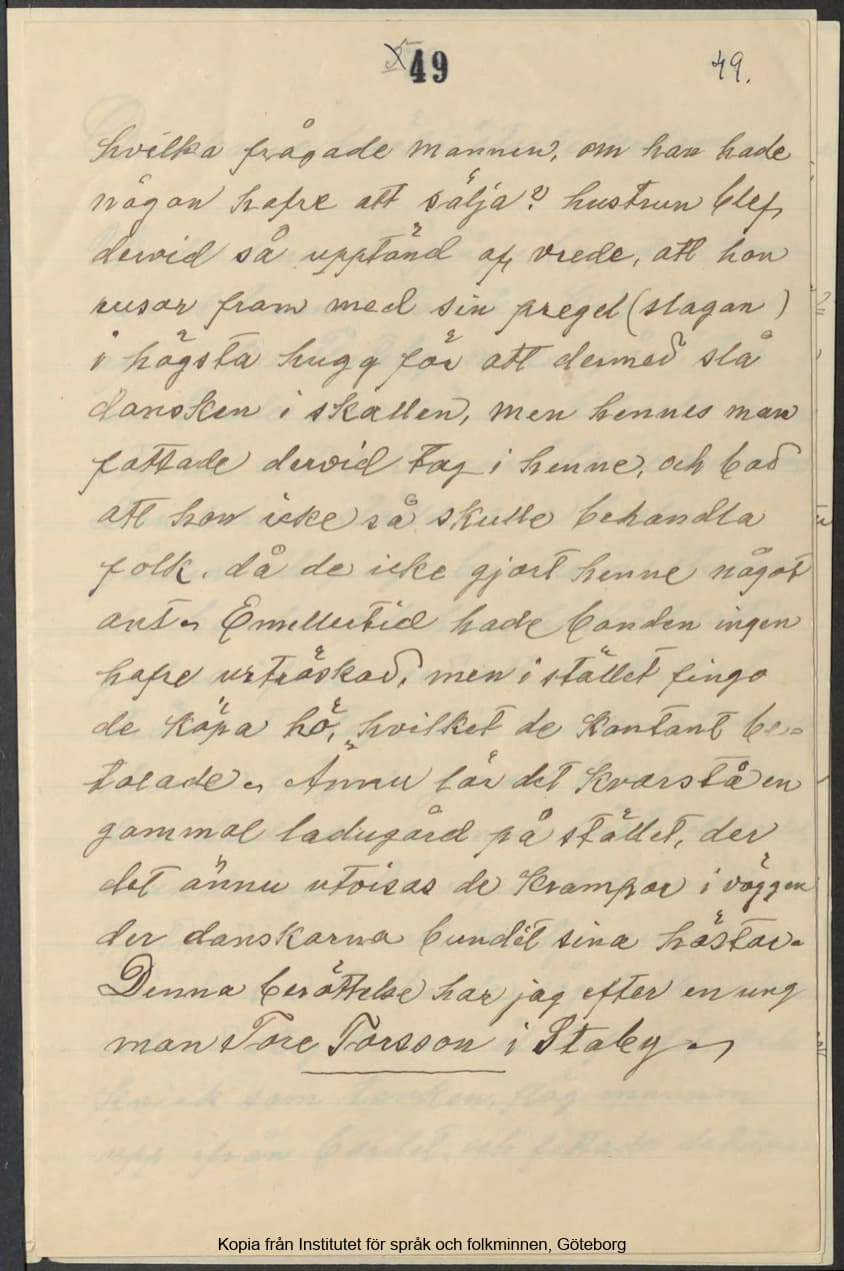 49
49.
hvilka frågade mannen, om han hade
någon hafre att sälja? hustrun blef
dervid så upptänd af vrede, att hon
rusar fram med sin pregel (slagan)
i högsta hugg för att dermed slå
dansken i skallen, men hennes man
fattade dervid tag i henne, och bad
att hon icke så skulle behandla
folk. då de icke gjort henne något
ont. Emellertid hade bonden ingen
hafre urtröskad, men i stället fingo
de köpa hö, hvilket de kontant be=
talade. Ännu lär det kvarstå en
gammal ladugård på stället, der
det ännu utvisas de krampor i väggen
der danskarna bundit sina hästar.
Denna berättelse har jag efter en ung
man Tore Torsson i Staby.
Kopia från Institutet för språk och folkminnen, Göteborg